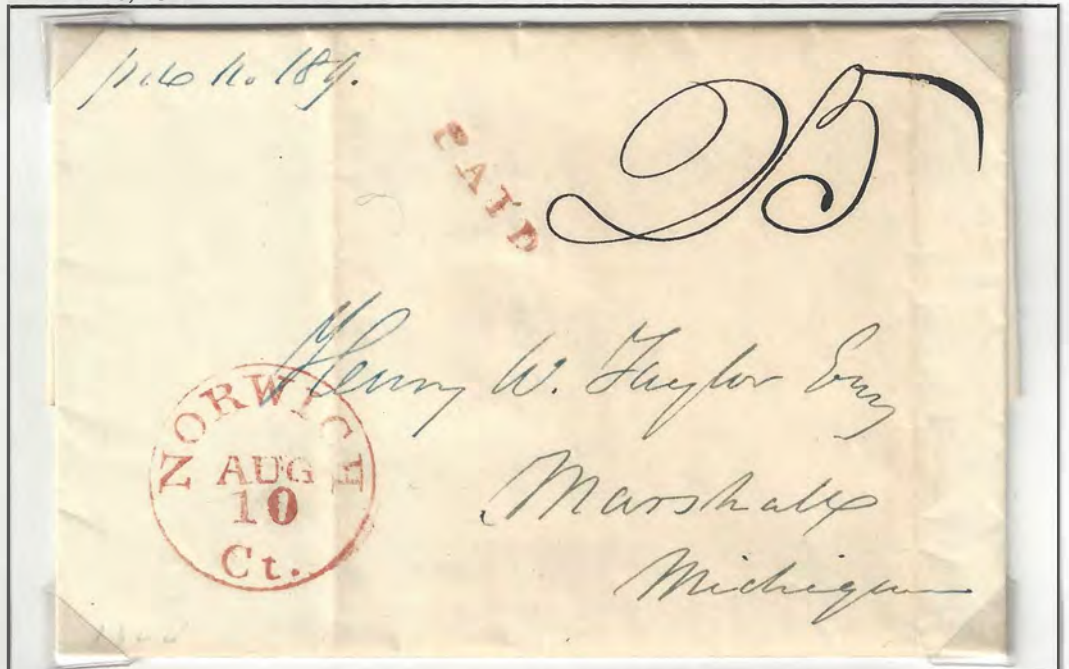 No. 189.
PAID
25
Henry W. Taylor Esq
Marshall
Michigan
NORWICH
AUG
10
Ct.